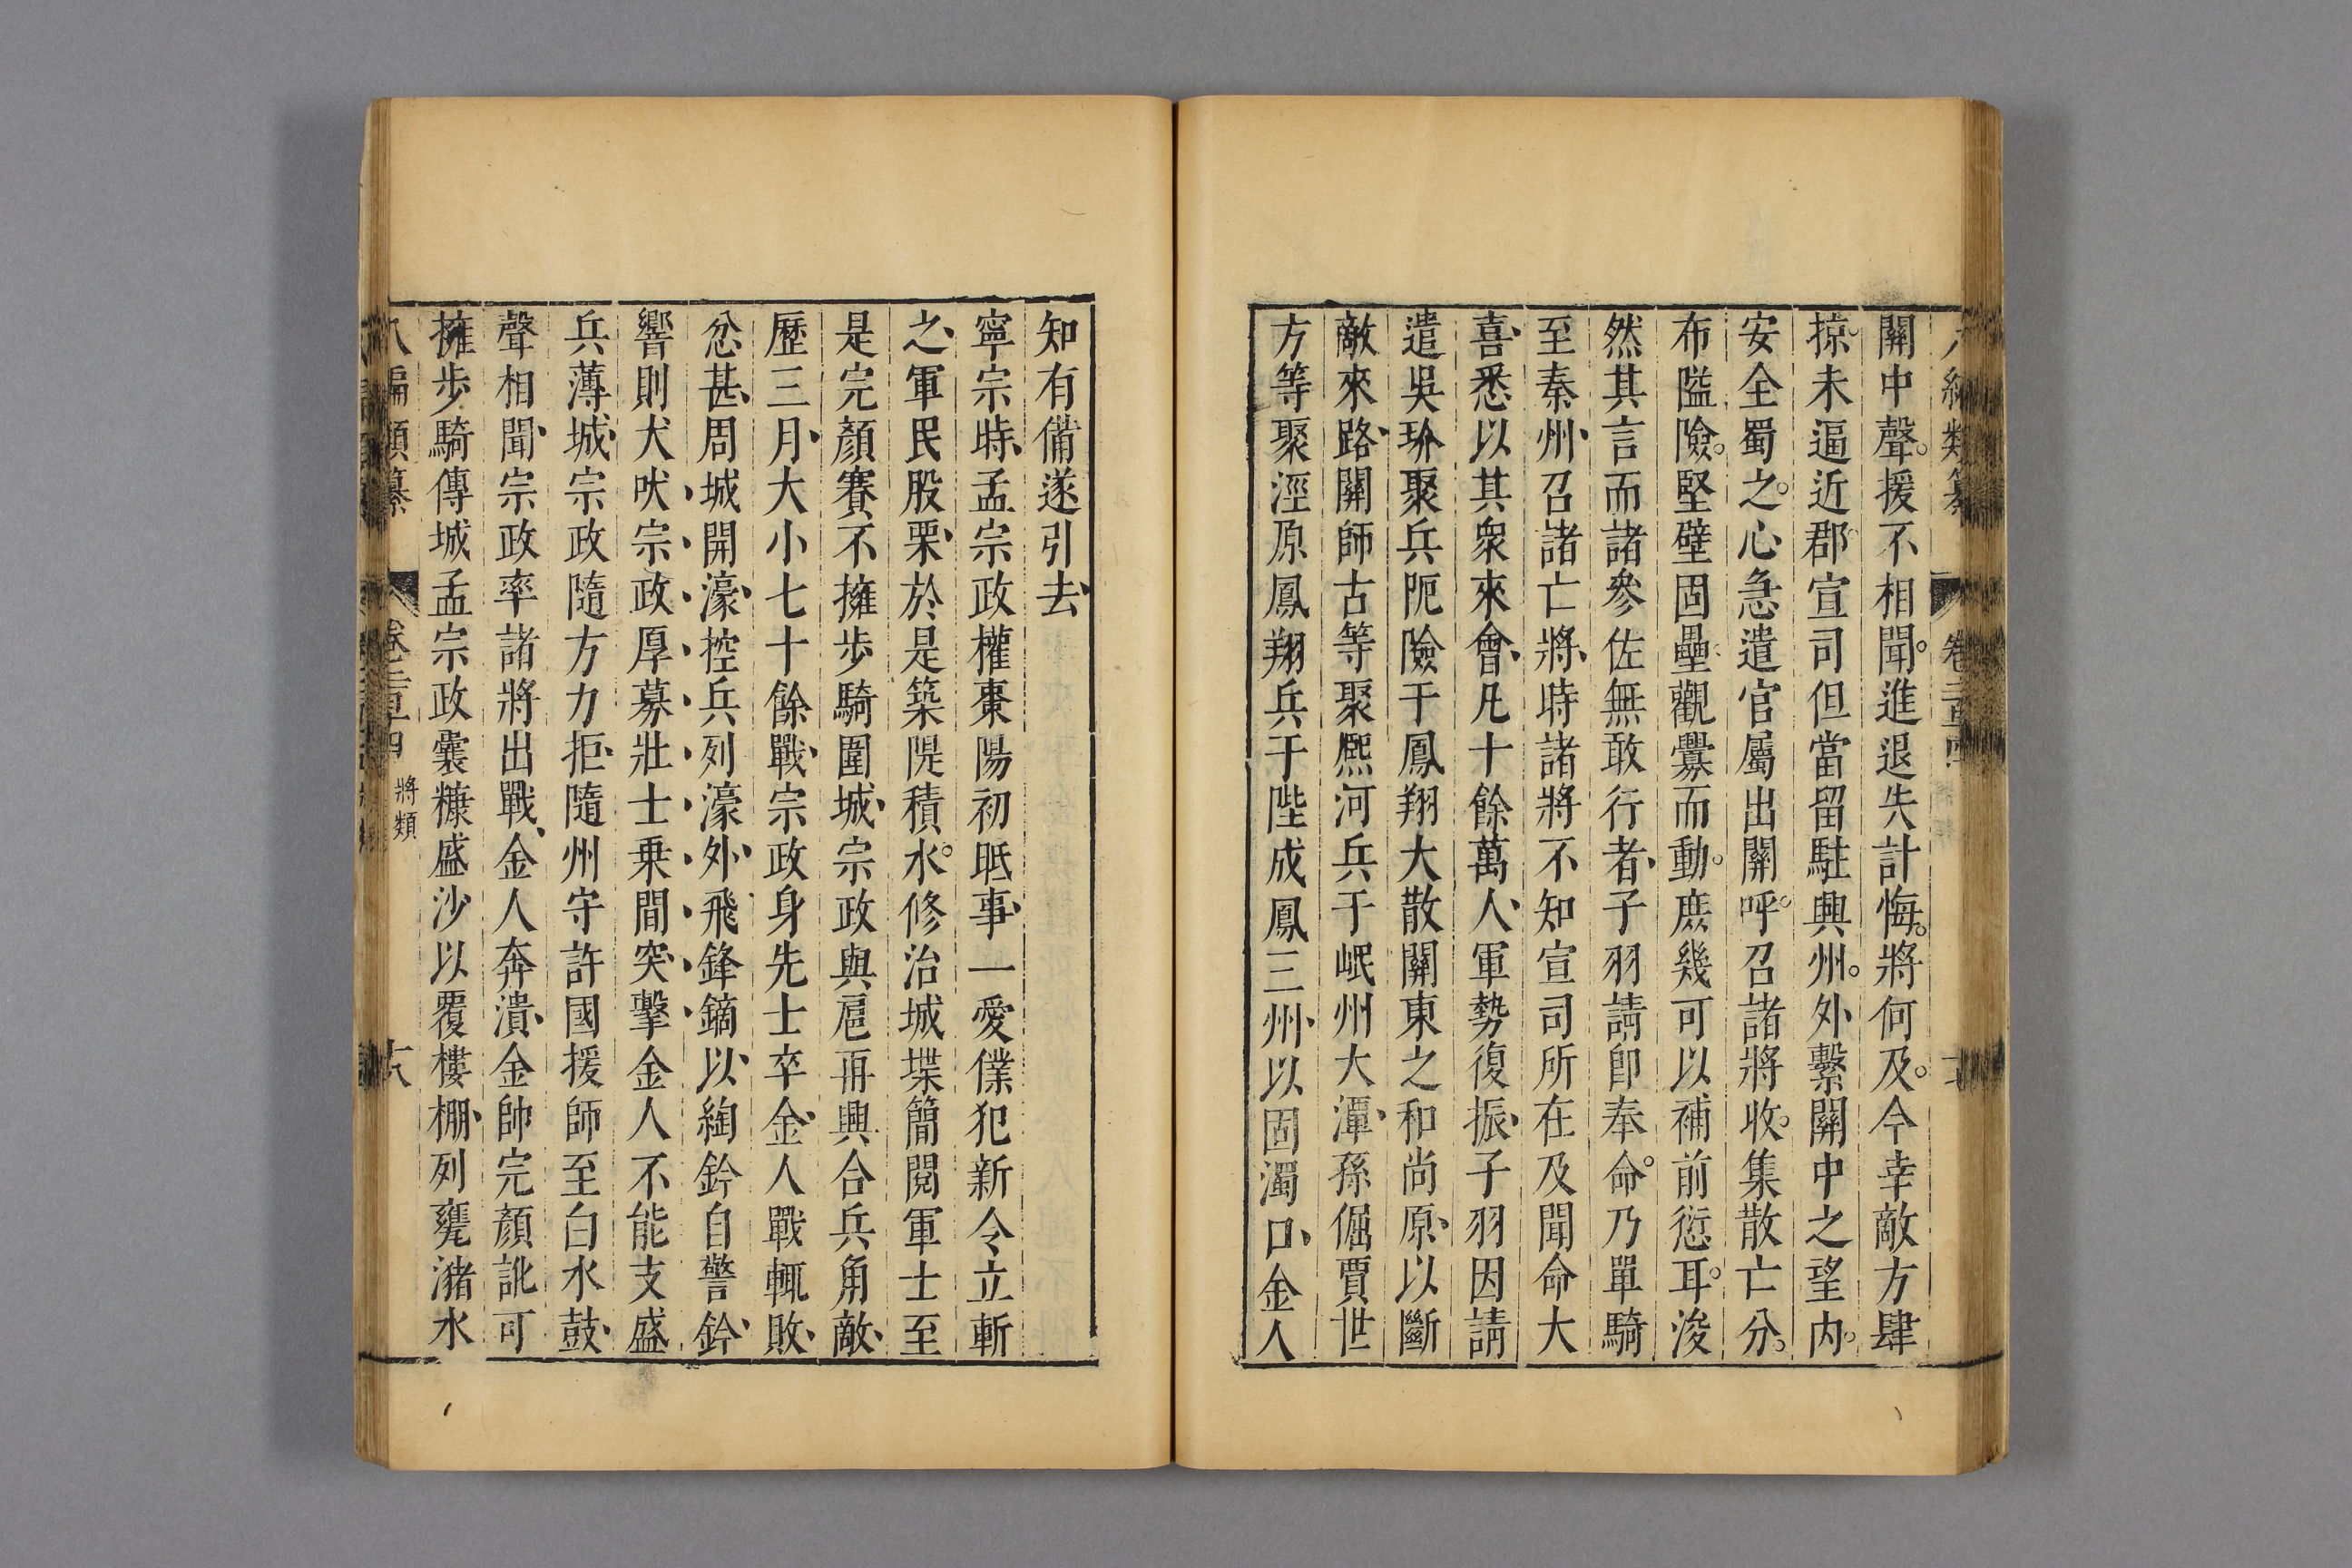 編類纂 卷二百四
關中聲援不相聞進退失計悔將何及今幸敵方肆
掠未逼近郡宣司但當留駐興州外繫關中之望内
安全蜀之心急遣官屬出關呼召諸將收集散亡分
布隘險堅壁固壘觀釁而動庶幾可以補前愆耳浚
然其言而諸參佐無敢行者子羽請卽奉命乃單騎
至秦州召諸亡將時諸將不知宣司所在及聞命大
喜悉以其衆來會凡十餘萬人軍勢復振子羽因請
遣吳玠聚兵阨險于鳳翔大散關東之和尚原以斷
敵來路關師古等聚熈河兵于岷州大潭孫偓賈世
方等聚涇原鳳翔兵于陛成鳳三州以固濁口金人
知有備遂引去
寧宗時孟宗政權棗陽初眡事一愛僕犯新令立斬
之軍民股栗於是築隄積水修治城堞簡閱軍士至
是完顏賽不擁步騎圍城宗政與扈再興合兵角敵
歷三月大小七十餘戰宗政身先士卒金人戰輒敗
忿甚周城開濠控兵列濠外飛鋒鏑以綯鈴自警鈴
響則犬吠宗政厚募壯士乗間突擊金人不能支盛
兵薄城宗政隨方力拒隨州守許國援師至白水鼓
聲相聞宗政率諸將出戰金人奔潰金帥完顏訛可
擁步騎傅城孟宗政囊糠盛沙以覆樓棚列甕瀦水
八編類纂 卷二百四 將類 十八